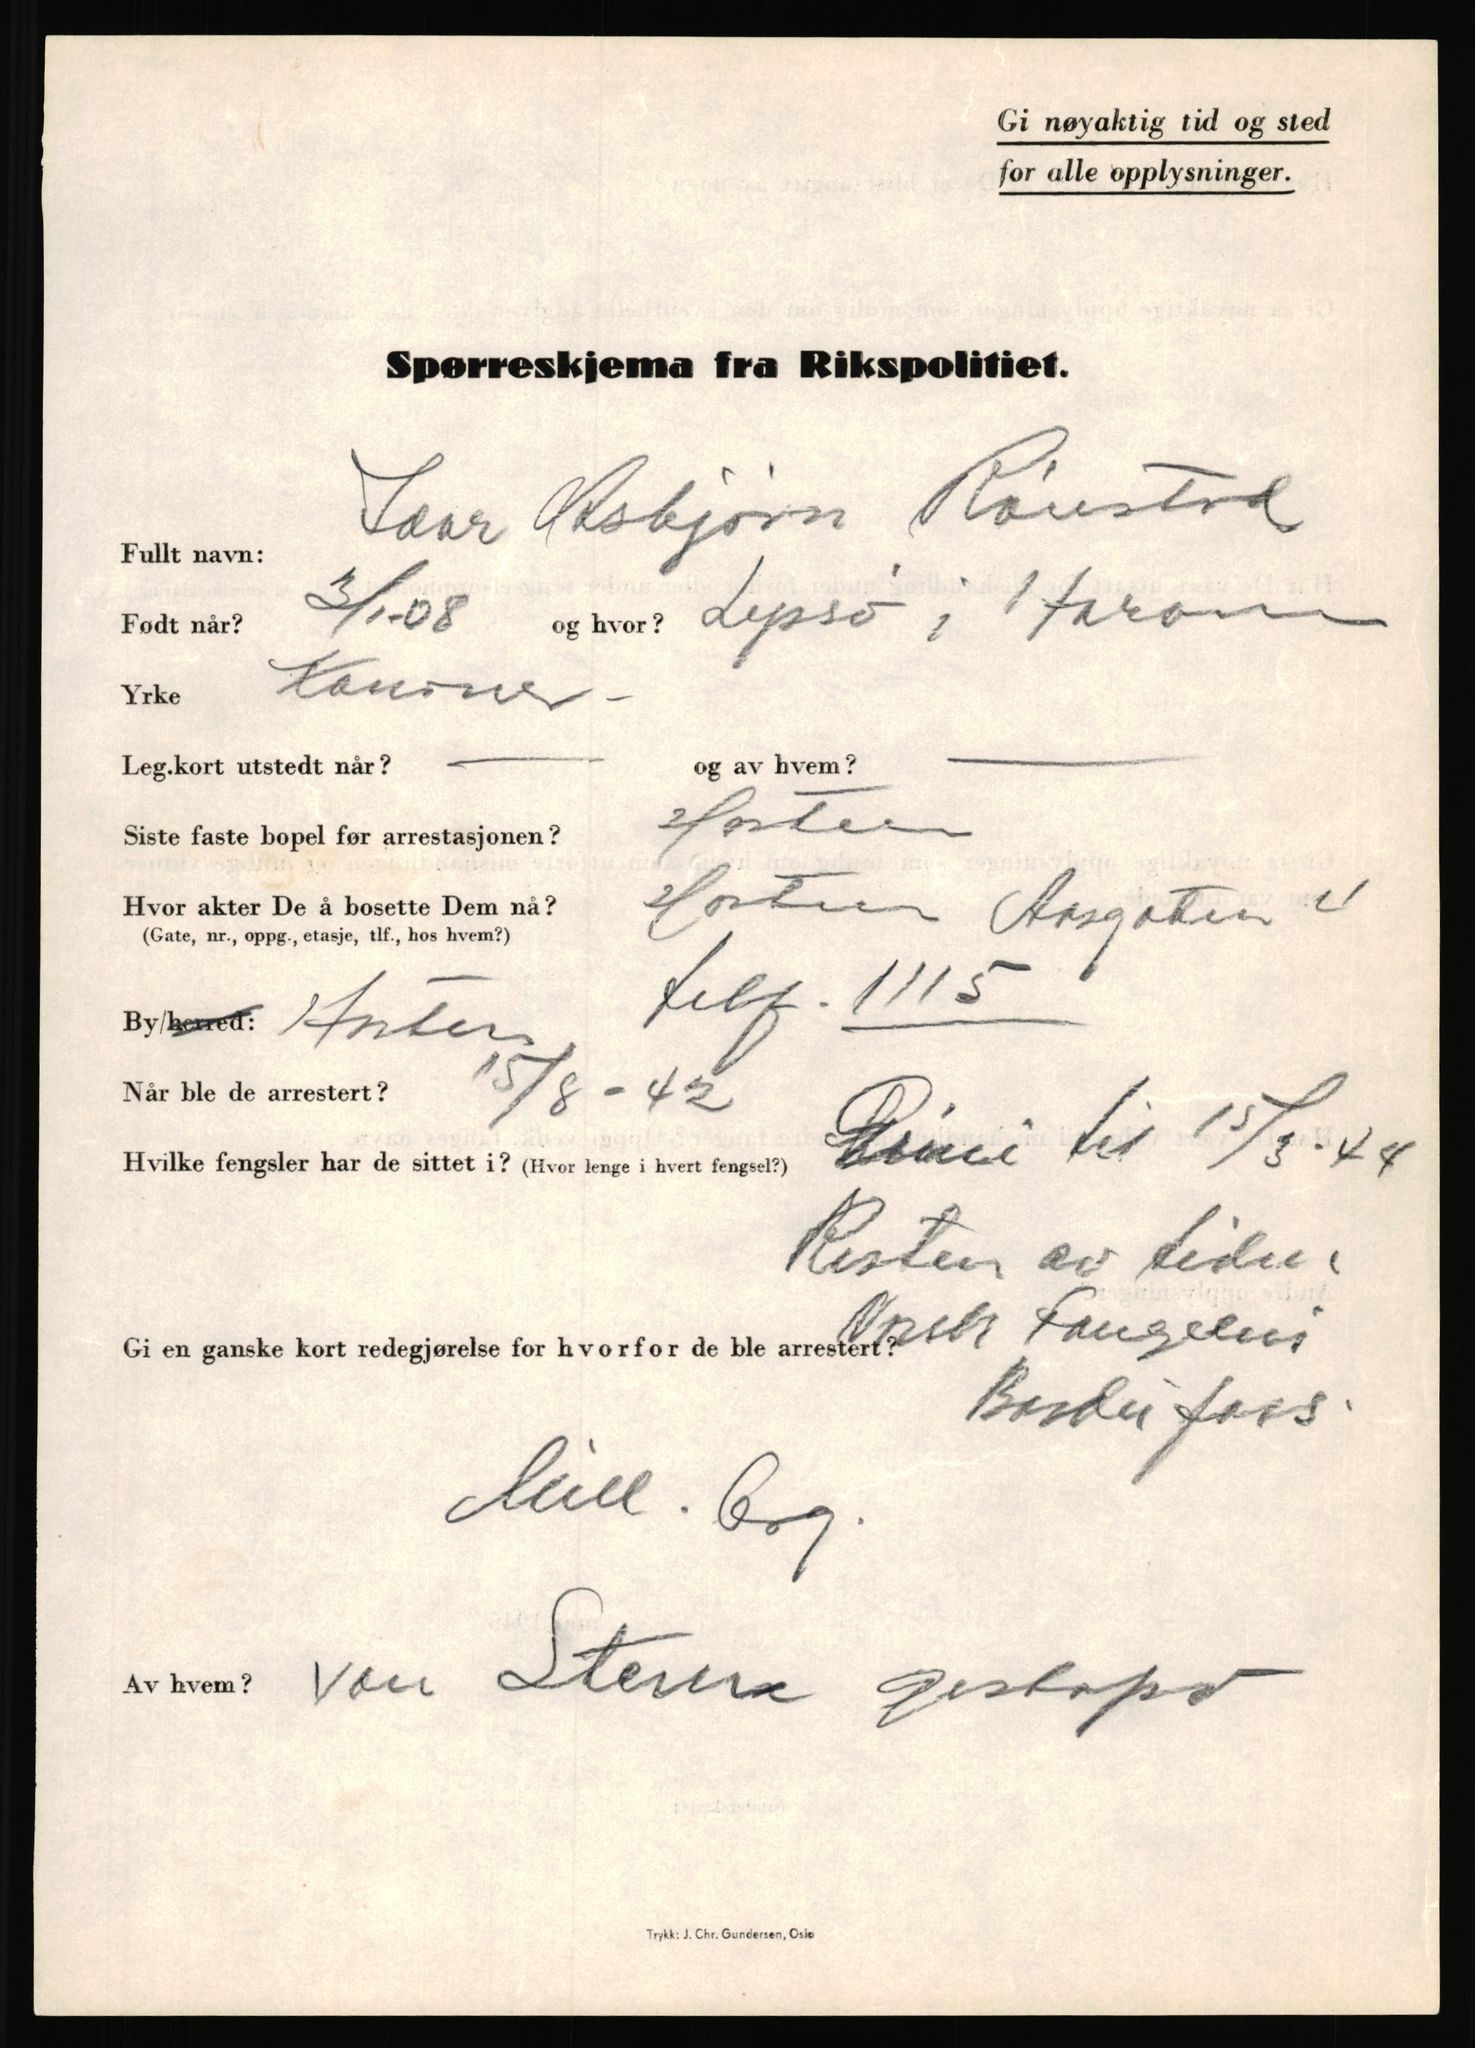 Gi nøyaktig tid og sted
for alle opplysninger.
Spørreskjema fra Rikspolitiet.
Fullt navn: Ivar Asbjørn Rønstad
Født når? 3/1-08 og hvor? Lepsø i Haram
Yrke
Leg.kort utstedt når? — og av hvem? —
Siste faste bopel før arrestasjonen? Horten
Hvor akter De å bosette Dem nå? Horten Aasgaten
(Gate, nr., oppg., etasje, tlf., hos hvem?)
By/herred: Horten telf. 1115
Når ble de arrestert? 15/8-42
Hvilke fengsler har de sittet i? (Hvor lenge i hvert fengsel?) Grini til 15/3-44
Resten av tiden
Norsk Fangeleir
Gi en ganske kort redegjørelse for hvorfor de ble arrestert?
Bardufoss.
Mill. Org.
Av hvem? von Stenn gestapo
Trykk: J. Chr. Gundersen, Oslo